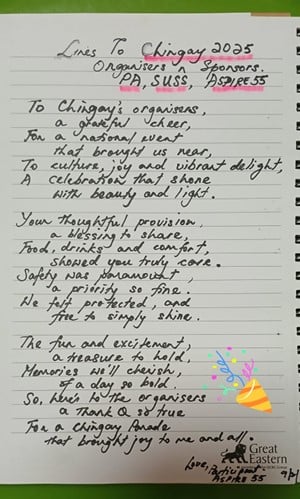 Lines To Chingay 2025
Organisers n Sponsors.
PA, SUSS, ASPIRE 55
To Chingay's organisers,
a grateful cheer,
For a national event
that brought us near,
To culture, joy and vibrant delight,
A celebration that shone
with beauty and light.
Your thoughtful provision,
a blessing to share,
Food, drinks and comfort,
showed you truly care.
Safety was paramount,
a priority so fine.
We felt protected, and
free to simply shine.
The fun and excitement,
a treasure to hold,
Memories we'll cherish,
of a day so bold.
So, here's to the organisers
a Thank Q so true
For a Chingay Parade
that brought joy to me and all.
Great
Eastern
Love,
Participant
Aspire 55